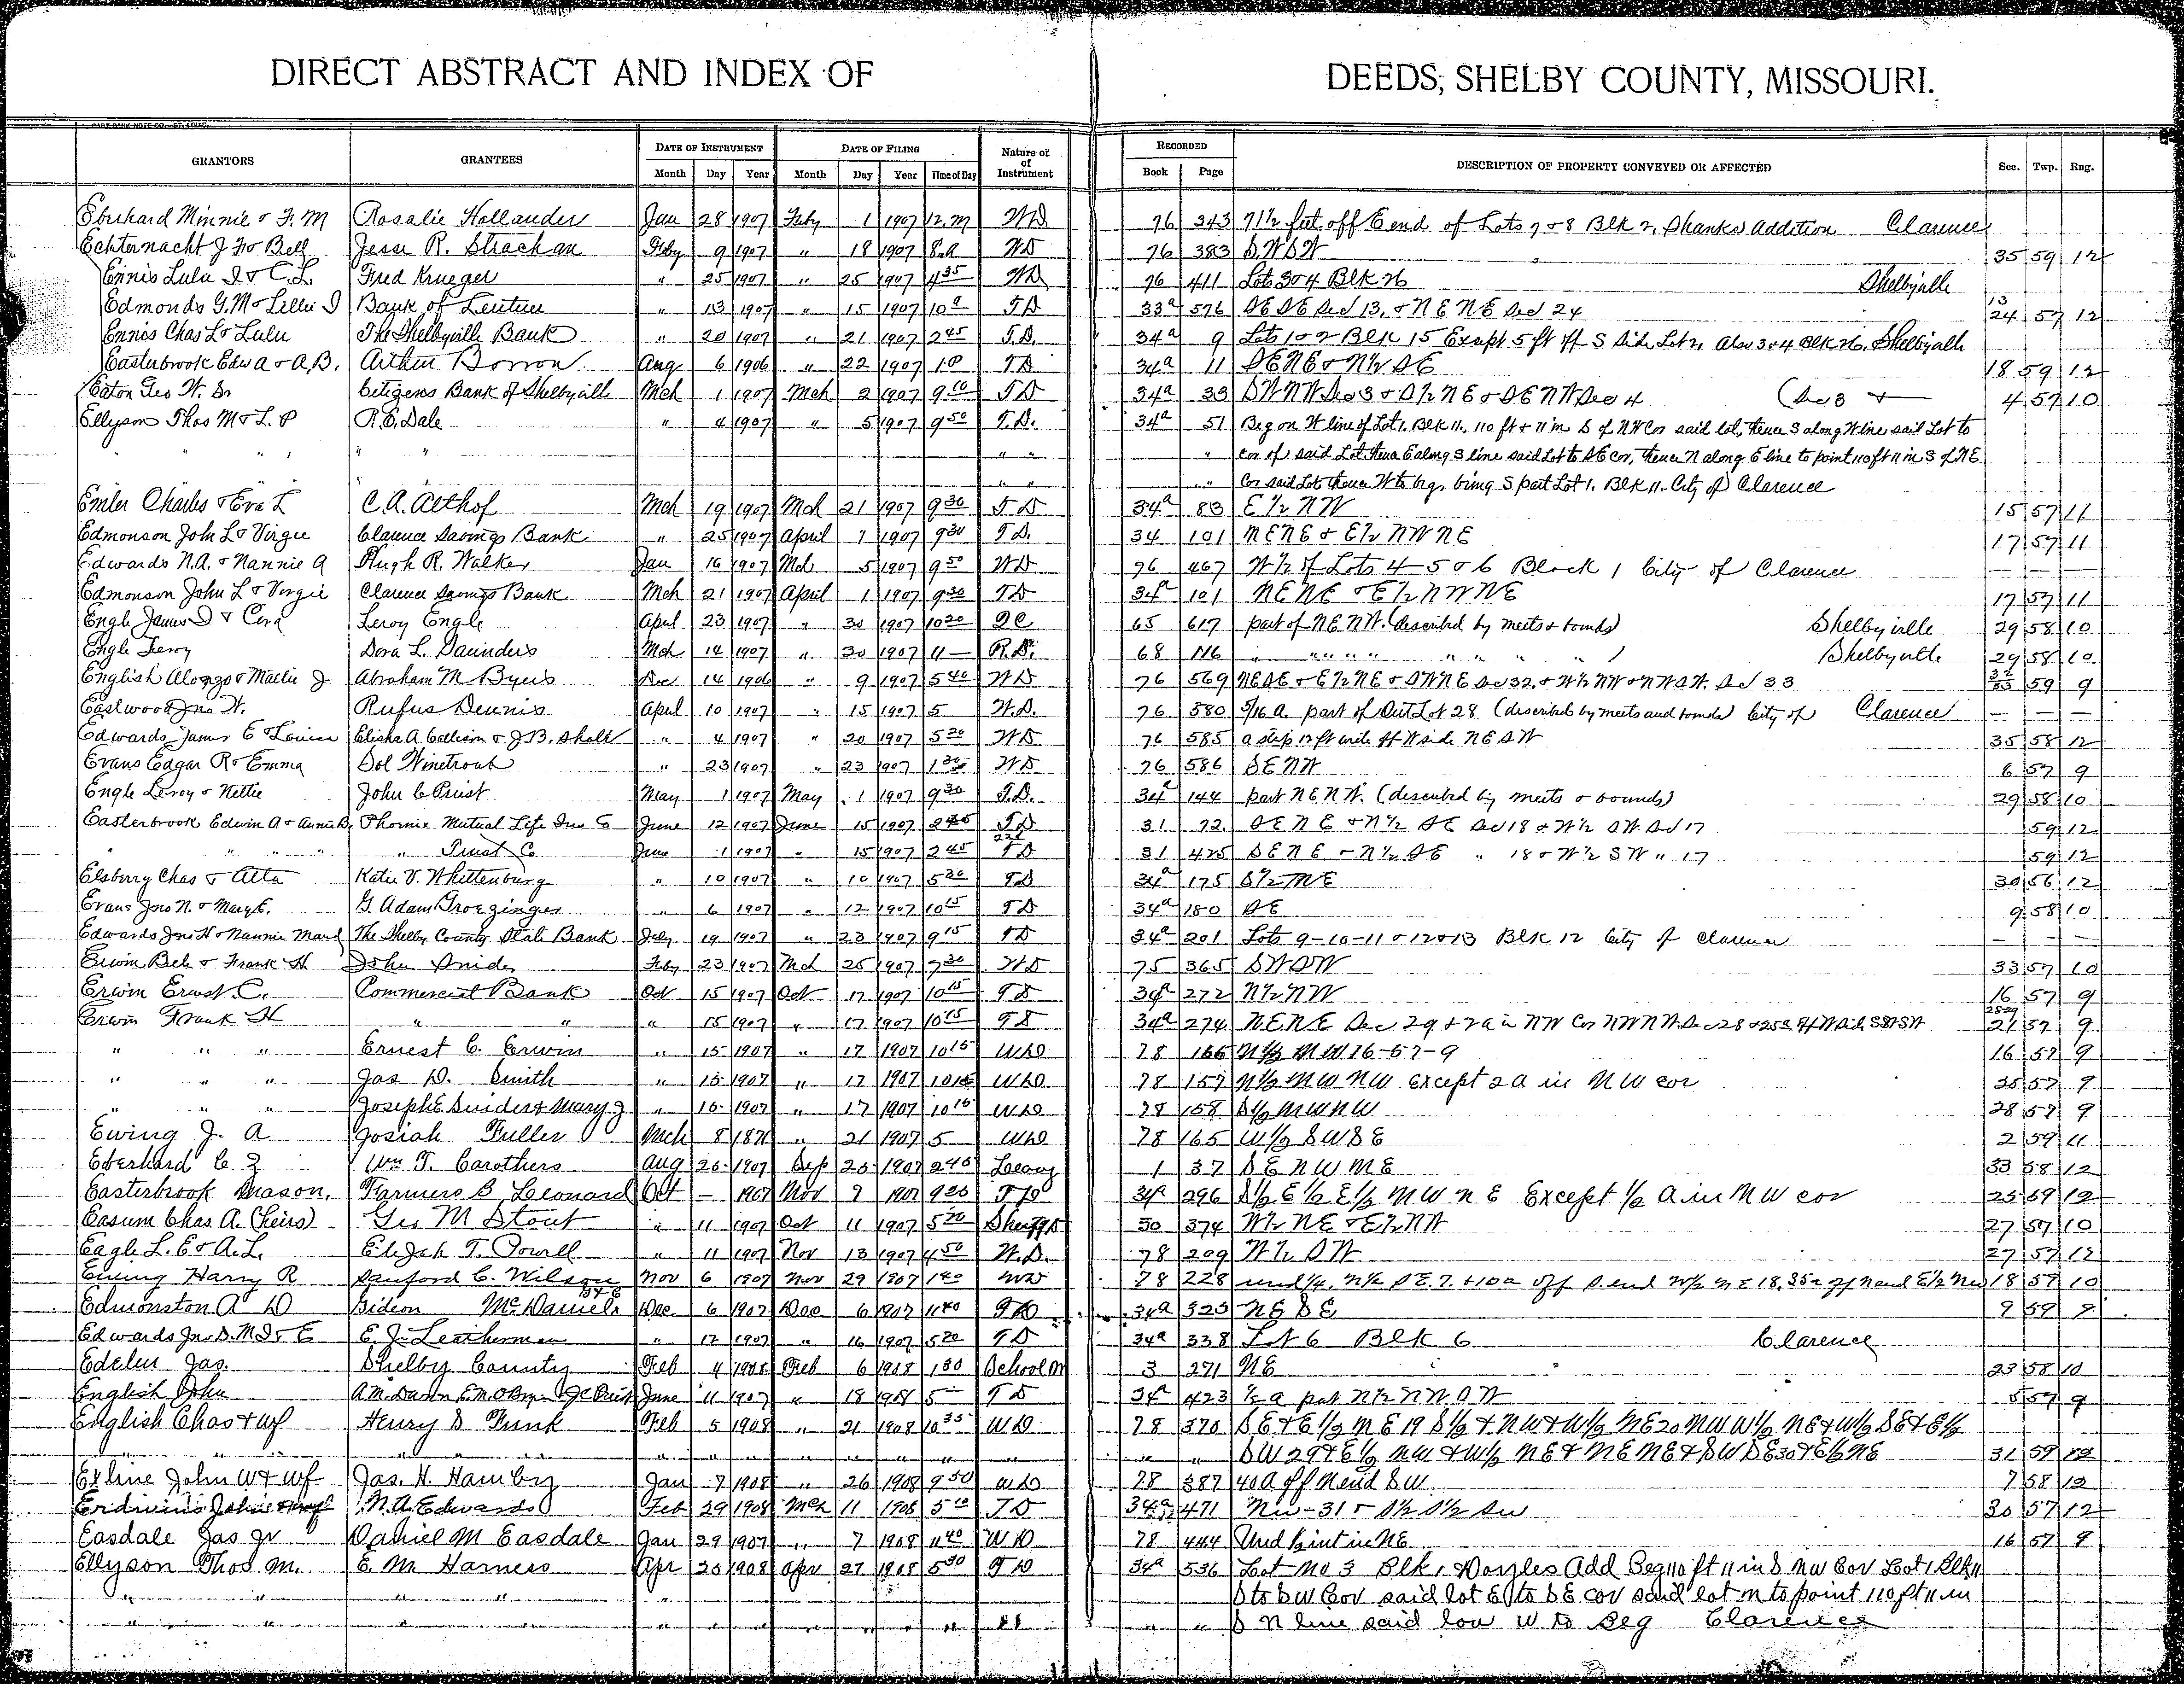 DIRECT ABSTRACT AND INDEX OF DEEDS, SHELBY COUNTY, MISSOURI.
GRANTORS GRANTEES DATE OF INSTRUMENT DATE OF FILING Nature of of Instrument RECORDED DESCRIPTION OF PROPERTY CONVEYED OR AFFECTED Sec. Twp. Rng.
Month Day Year Month Day Year Time of Day Book Page
Eberhard Minnie & F. M Rosalie Hollander Jan 28 1907 Feby 1 1907 12.M WD 76 343 71½ feet off E end of Lots 7 & 8 Blk 2, Shanks Addition Clarence
Echternacht J F & Bell Jesse R. Strachan Feby 9 1907 " 18 1907 8.a WD 76 383 SWSW 35 59 12
Ennis Lulu I & C. L. Fred Krueger " 25 1907 " 25 1907 4 35 WD 76 411 Lots 3 & 4 Blk 26 Shelbyville
Edmonds G. M & Lillie I Bank of Lentner " 13 1907 " 15 1907 10 a TD 33a 576 SESE Sec 13, & NENE Sec 24 13 24 57 12
Ennis Chas L & Lulu The Shelbyville Bank " 20 1907 " 21 1907 2 45 T.D. 34a 9 Lots 1 & 2 Blk 15 Except 5 ft off S Side Lot 2, also 3 & 4 Blk 26, Shelbyville
Easterbrook Edw A & A.B. Arthur Borron Aug 6 1906 " 22 1907 1 P TD 34a 11 SENE & N½ SE 18 59 12
Eaton Geo W. Sr Citizens Bank of Shelbyville Mch 1 1907 Mch 2 1907 9 10 TD 34a 33 SWNW Sec 3 & S½ NE & SENW Sec 4 (Sec 3 & 4 57 10
Ellyson Thos M & L. P R. E. Dale " 4 1907 " 5 1907 9 50 T.D. 34a 51 Beg on W line of Lot 1, Blk 11, 110 ft & 11 in S of NW Cor said lot, thence S along W line said Lot to
" " " " " " " cor of said Lot. thence E along S line said Lot to SE cor, thence N along E line to point 110 ft 11 in S of NE
" " " Cor said Lot thence W to beg. being S part Lot 1, Blk 11. City of Clarence
Emler Charles & Eva L C. A. Althof Mch 19 1907 Mch 21 1907 9 30 TD 34a 83 E½ NW 15 57 11
Edmonson John L & Virgie Clarence Savings Bank " 25 1907 April 1 1907 9 30 T.D. 34 101 NENE & E½ NWNE 17 57 11
Edwards N.A. & Nannie A Hugh R. Walker Jan 16 1907 Mch 5 1907 9 50 WD 76 467 W½ of Lots 4-5 & 6 Block 1 City of Clarence
Edmonson John L & Virgie Clarence Savings Bank Mch 21 1907 April 1 1907 9 30 TD 34a 101 NENE & E½ NWNE 17 57 11
Engle James D & Cora Leroy Engle April 23 1907 " 30 1907 10 20 QC 65 617 part of NENW. (described by meets & bounds) Shelbyville 29 58 10
Engle Leroy Dora L. Saunders Mch 14 1907 " 30 1907 11 R.D. 68 116 " " " " " " " ) Shelbyville 29 58 10
English Alonzo & Mattie J Abraham M Byers Dec 14 1906 " 9 1907 5 40 WD 76 569 NESE & E½NE & SWNE Sec 32. & W½ NW & NWSW. Sec 33 32 33 59 9
Eastwood Jno W. Rufus Dennis April 10 1907 " 15 1907 5 W.D. 76 580 5/16 a. part of Out Lot 28 (described by meets and bounds) City of Clarence
Edwards James E & Louisa Elisha A Collison & J.B. Sholt " 4 1907 " 20 1907 5 20 WD 76 585 a strip 12 ft wide off W side NESW 35 58 12
Evans Edgar R & Emma Sol Winetroub " 23 1907 " 23 1907 1 30 WD 76 586 SENW 6 57 9
Engle Leroy & Nettie John C Priest May 1 1907 May 1 1907 9 30 T.D. 34a 144 part NENW. (described by meets & bounds) 29 58 10
Easterbrook Edwin A & Annie B, Phoenix Mutual Life Ins C June 12 1907 June 15 1907 2 45 TD 31 72 SENE & N½ SE Sec 18 & W½ SW Sec 17 59 12
" " " " " Trust Co June 1 1907 " 15 1907 2 45 TD 31 425 SENE & N½ SE " 18 & W½ SW " 17 59 12
Elsberry Chas & Alta Katie V. Whittenburg " 10 1907 " 10 1907 5 20 TD 34a 175 S½ NE 30 56 12
Evans Jno N. & Mary E. G. Adam Groezinger " 6 1907 " 12 1907 10 15 TD 34a 180 SE 9 58 10
Edwards Jno H & Nannie Maud The Shelby County State Bank July 19 1907 " 23 1907 9 15 TD 34a 201 Lots 9-10-11 & 12 & 13 Blk 12 City of Clarence
Erwin Bell & Frank H John Snider Feby 23 1907 Mch 25 1907 9 30 WD 75 365 SWSW 33 57 10
Erwin Ernest C. Commercial Bank Oct 15 1907 Oct 17 1907 10 15 TD 34a 272 N½ NW 16 57 9
Erwin Frank H " " " 15 1907 " 17 1907 10 15 TD 34a 274 NENE Sec 29 & 2a in NW Cor NWNW Sec 28 & 25a off W side SWSW 28-29 21 57 9
" " " Ernest C. Erwin " 15 1907 " 17 1907 10 15 WD 78 156 N½ NW 16-57-9 16 57 9
" " " Jas D. Smith " 15 1907 " 17 1907 10 15 WD 78 157 N½ NW NW except 2a in NW cor 57 9
" " " Joseph E Snider & Mary J " 15 1907 " 17 1907 10 15 WD 78 158 S½ NWNW 28 57 9
Ewing J. A Josiah Fuller Mch 8 " 21 1907 5 WD 78 165 W½ SWSE 2 59 11
Eberhard C. Z Wm T. Carothers Aug 26 1907 Sep 25 1907 2 45 1 37 SENWNE 33 58 12
Easterbrook Mason, Farmers B. Leonard Oct 1907 Nov 9 1907 9 20 TD 34a 296 S½ E½ E½ NW NE Except ½ A in NW cor 25 59 12
Easum Chas A. (heirs) Geo M Stout " 11 1907 Oct 11 1907 5 20 Sheriffs D 50 374 W½ NE & E½NW 27 57 10
Eagle L. E & A. L. Elijah T. Powell " 11 1907 Nov 13 1907 4 50 W.D. 78 209 W½ SW 27 57 12
Ewing Harry R Sanford C. Wilson Nov 6 1907 Nov 29 1907 1 40 WD 78 228 und ¼, N½ SE 7. & 10a off S. end W½ NE 18, 35a off N end E½ NW 18 59 10
Edmonston A D Gideon McDaniels Dec 6 1907 Dec 6 1907 11 40 TD 34a 323 NESE 9 59 9
Edwards Jno. D. M I & E E. J. Leatherman " 12 1907 " 16 1907 5 20 TD 34a 338 Lot 6 Blk 6 Clarence
Edelen Jas. Shelby County Feb 4 1908 Feb 6 1908 1 30 School M 3 271 NE 23 58 10
English John June 11 1907 " 18 1908 5 TD 34a 423 ½ a part N½ NWSW 5 57 9
English Chas & Wf Henry D Funk Feb 5 1908 " 21 1908 10 35 WD 78 370 SE & E½ NE 19 S½ & NW & W½ NE 20 NW W½ NE & W½ SE & E½
" " " " " " " " " " SW 29 & E½ NW & W½ NE & NENE & SWSE 30 & E½ NE 31 59 12
Exline John W & Wf Jas. H. Hamby Jan 7 1908 " 26 1908 9 50 WD 78 387 40 A off N end SW 7 58 12
N. A. Edwards Feb 29 1908 Mch 11 1908 5 10 TD 34a 471 NW-31 & S½ S½ SW 30 57 12
Easdale Jas Jr Daniel M Easdale Jan 29 1907 " 7 1908 11 40 WD 78 444 Und int in NE 16 57 9
Ellyson Thos M. E. M Harness Apr 25 1908 Apr 27 1908 5 30 TD 34a 536 Lot No 3 Blk 1 Doyles Add Beg 110 ft 11 in S NW Cor Lot 1 Blk 11
" " " " " " S to SW Cor said lot E to SE cor said lot N to point 110 ft 11 in
" " " " " " " " S N line said low W to Beg Clarence